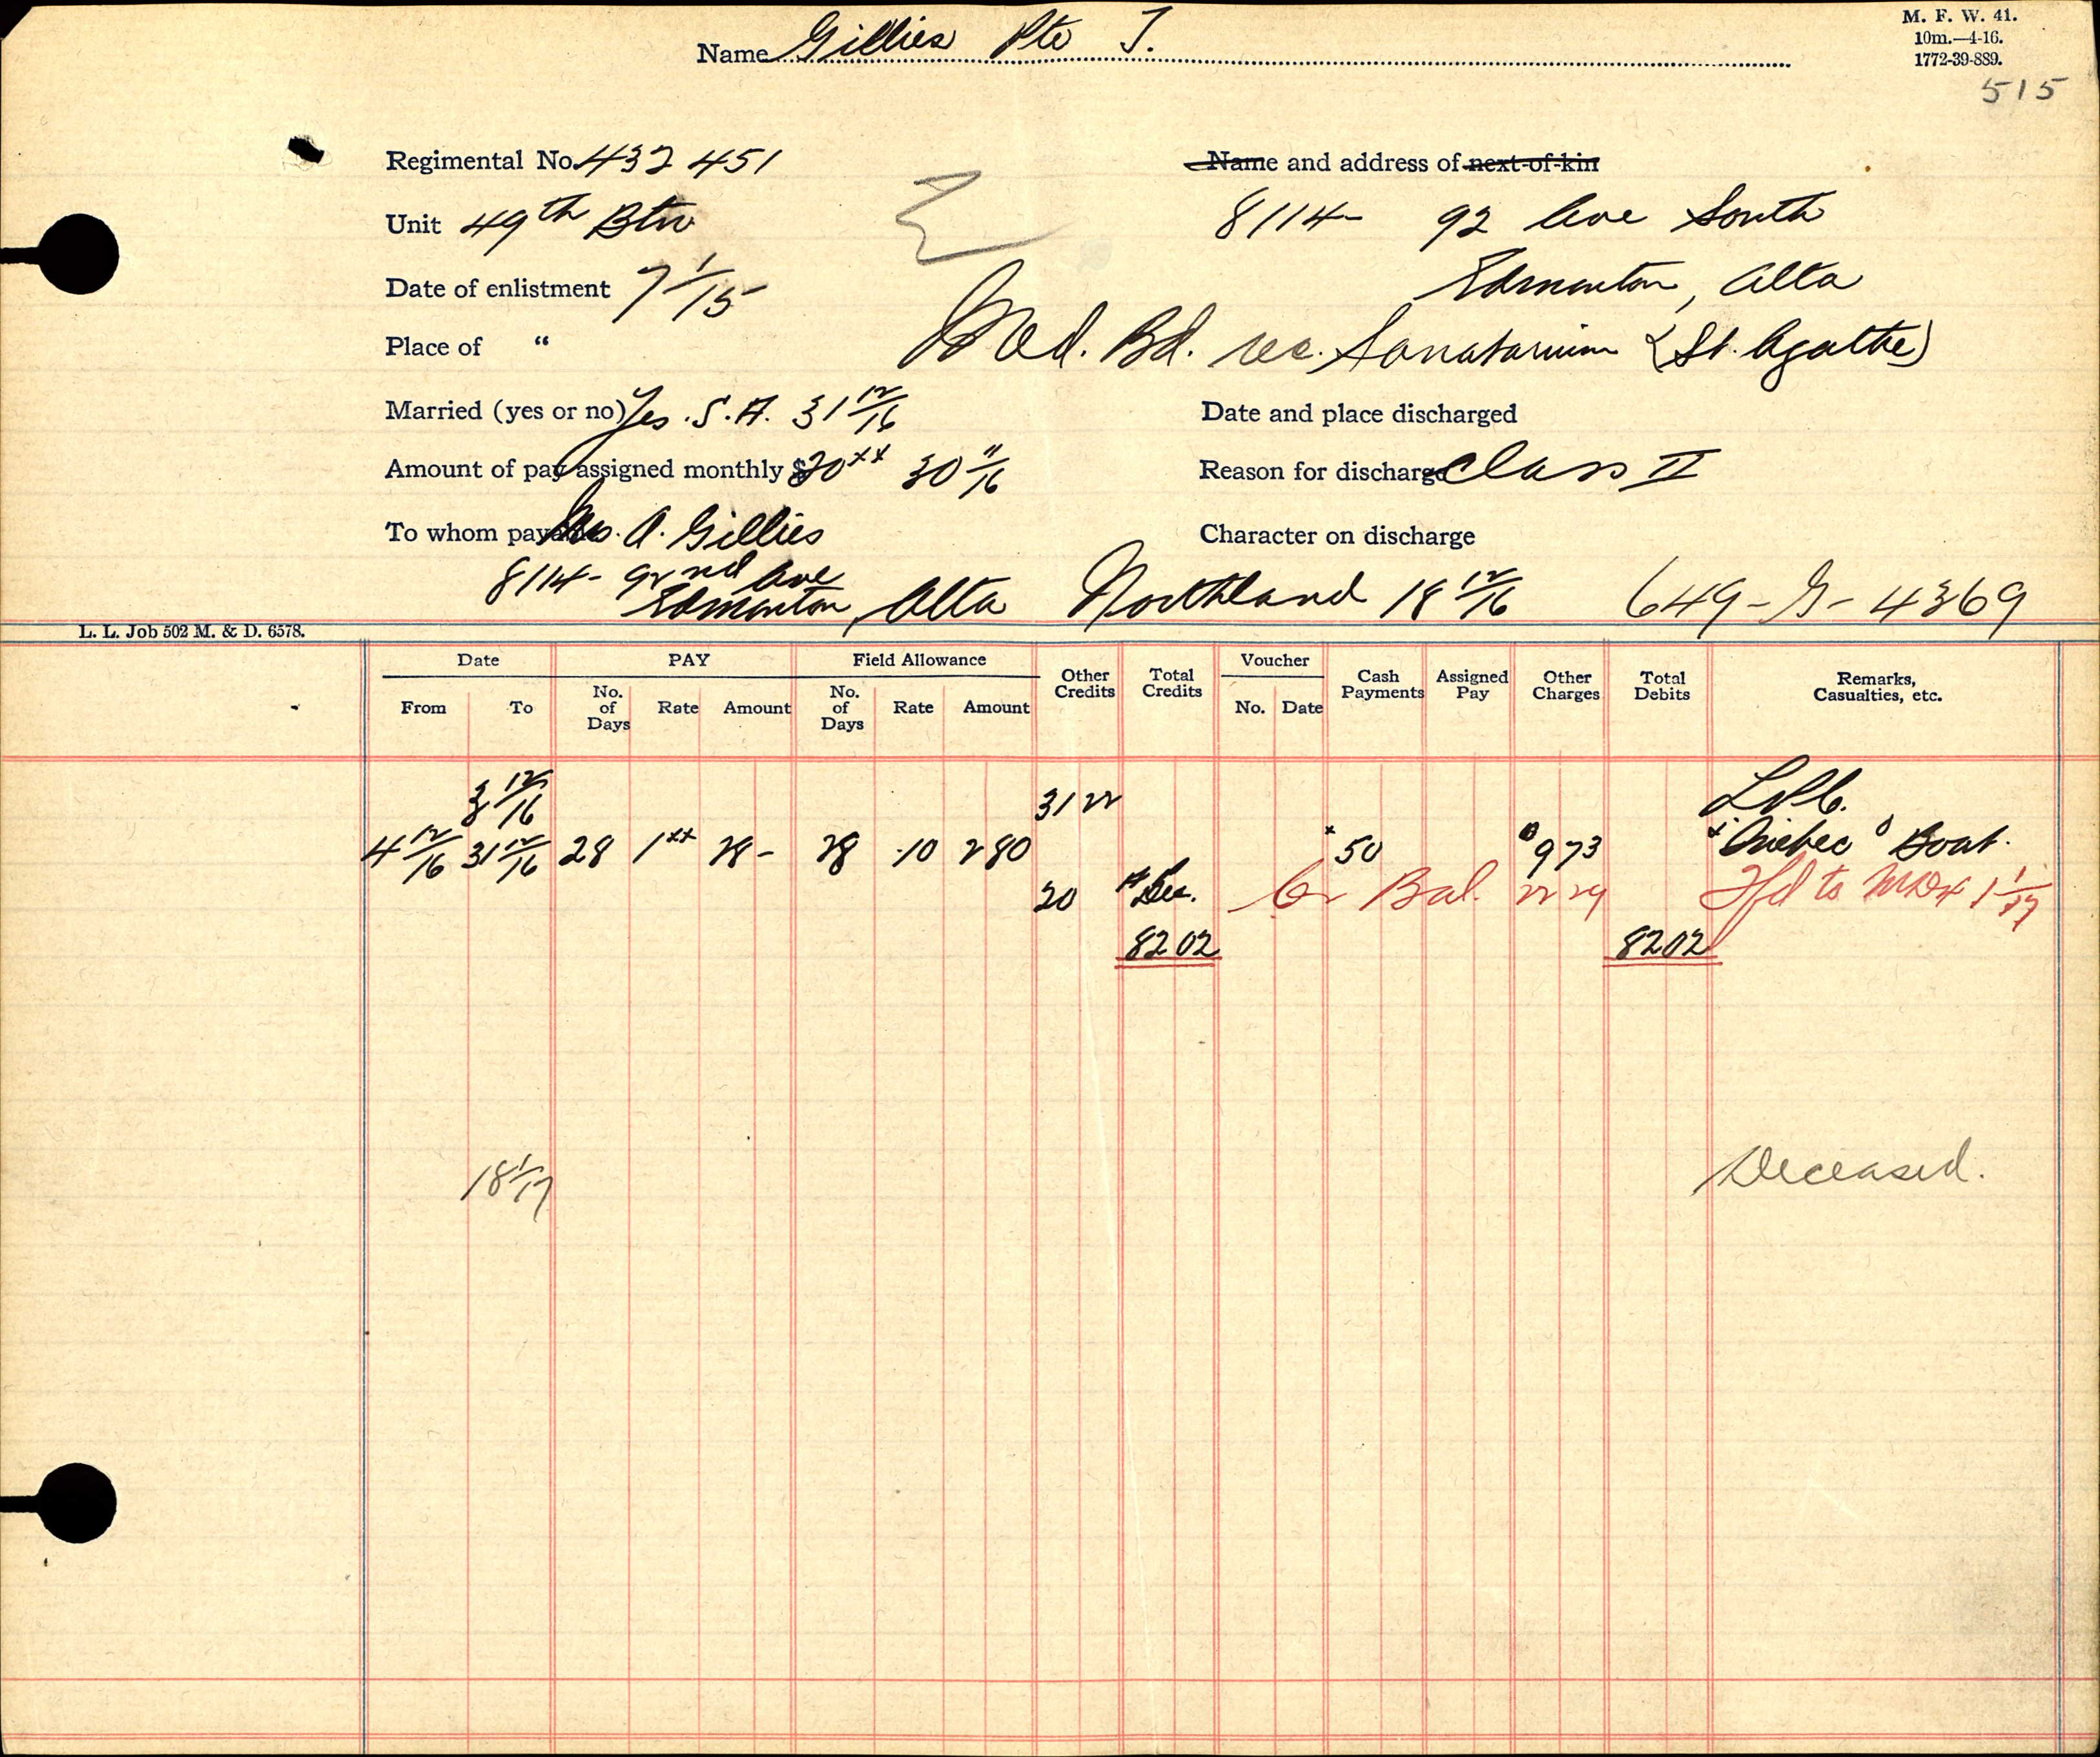 M. F. W. 41.
10m.—4-16.
1772-39-889.
515
Name Gillies Pte J.
Regimental No. 432451
Name and address of next-of-kin
Unit 49th Btn
8114- 92 Ave South
Date of enlistment 7 1/15
Edmonton, Alta
Place of "
Med. Bd. rec. Sanatarium (St. Agathe)
Married (yes or no) Yes. S.A. 31 12/16
Date and place discharged
Amount of pay assigned monthly $20xx 30 11/16
Reason for discharge Class II
To whom payable Mrs. A. Gillies
Character on discharge
8114- 92nd Ave
Edmonton, Alta
Northland 18 12/16 649-G-4369
L. L. Job 502 M. & D. 6578.
Date PAY Field Allowance Other Credits Total Credits Voucher Cash Payments Assigned Pay Other Charges Total Debits Remarks, Casualties, etc.
From To No. of Days Rate Amount No. of Days Rate Amount No. Date
3 12/16 31 22 L.P.C.
4 12/16 31 12/16 28 1xx 28- 28 .10 2 80 x50 o9 73 x"Quebec" o Boat.
20 # Dec. Cr Bal. 22 29 Tfd to 1 1/17
82 02 82 02
18 1/17 Deceased.